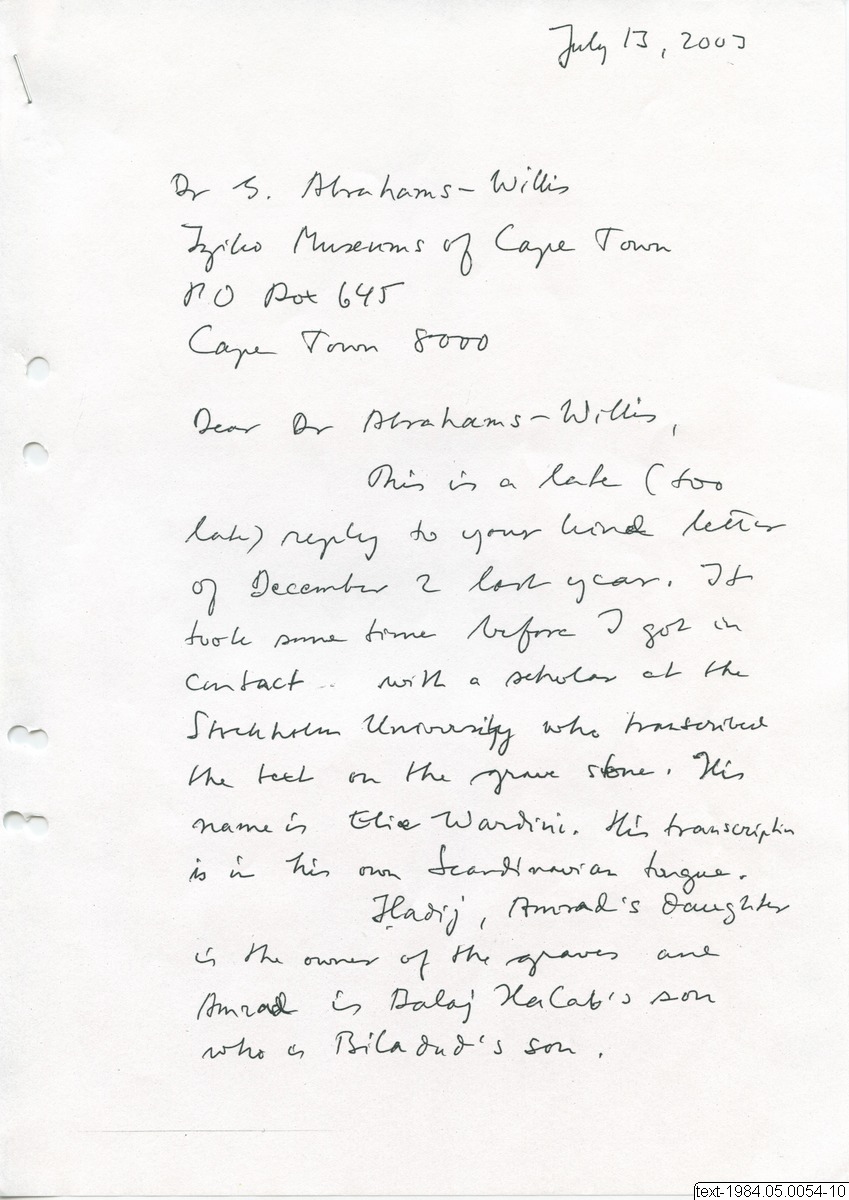 July 13, 2003
Dr S. Abrahams-Willis
Iziko Museums of Cape Town
PO Box 645
Cape Town 8000
Dear Dr Abrahams-Willis,
This is a late (too
late) reply to your kind letter
of December 2 last year. It
took some time before I got in
contact with a scholar at the
Stockholm University who transcribed
the text on the grave stone. His
name is Elie Wardini. His transcription
is in his own Scandinavian tongue.
Hadij, Amrad's daughter
is the owner of the graves and
Amrad is Balaj HaLab's son
who is Biladud's son.
text-1984.05.0054-10